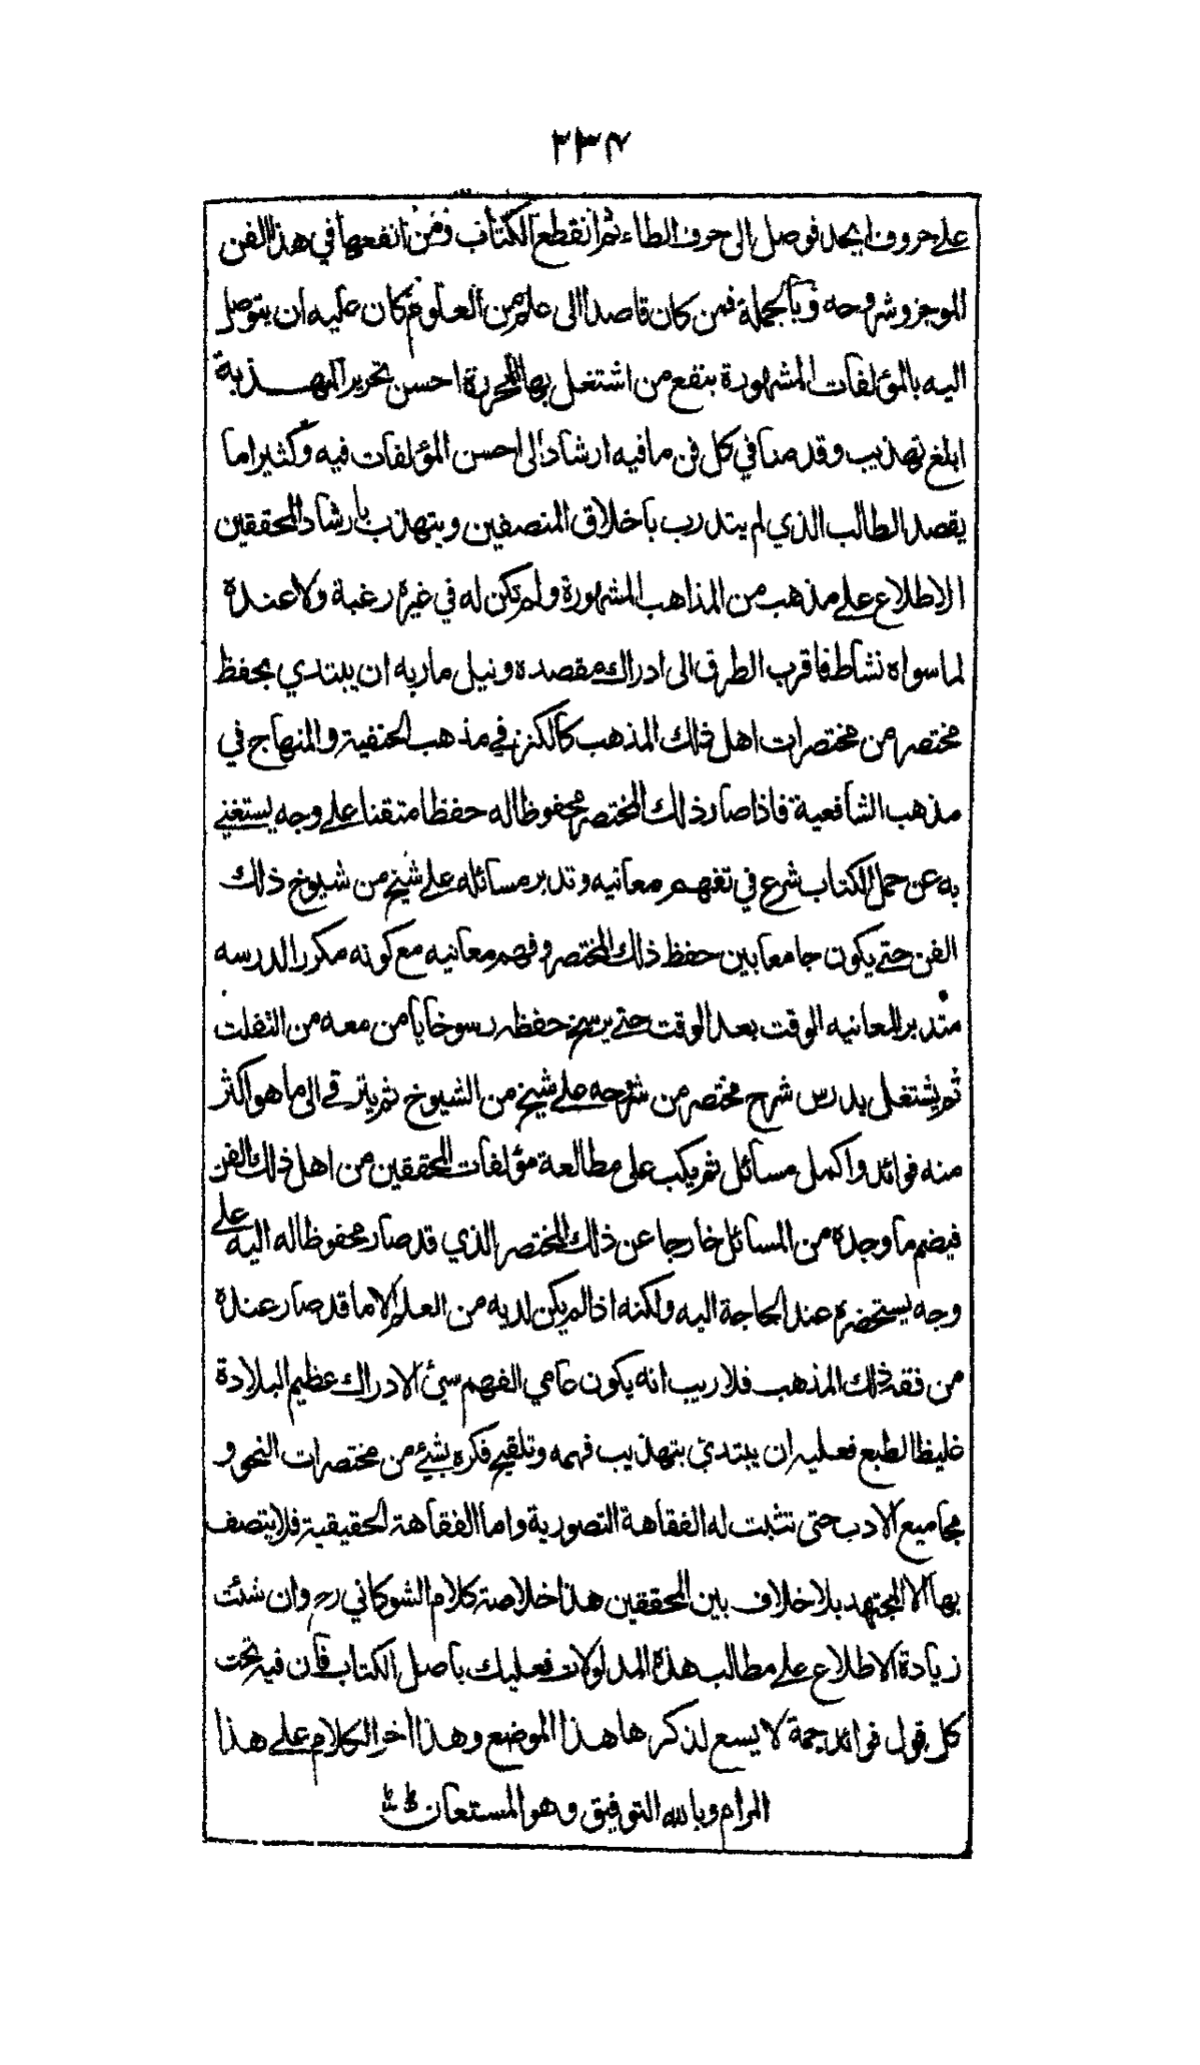 ٢٣٧
على حروف ابجد فوصل الى حرف الطاء ثم انقطع الكتاب ومن انفعها في هذا الفن
الموجز وشروحه وبالجملة فمن كان قاصدا الى علم من العلوم كان عليه ان يتوصل
اليه بالمؤلفات المشهورة بنفع من اشتغل بها المحررة احسن تحرير المهذبة
ابلغ تهذيب وقد منا في كل فن ما فيه ارشاد الى احسن المؤلفات فيه وكثيرا ما
يقصد الطالب الذي لم يتدرب باخلاق المنصفين ويتهذب بارشاد المحققين
الاطلاع على مذهب من المذاهب المشهورة ولم تكن له في غيره رغبة ولا عنده
لما سواه نشاط فاقرب الطرق الى ادراك مقصده ونيل ماربه ان يبتدي بحفظ
مختصر من مختصرات اهل ذلك المذهب كالكنز في مذهب الحنفية والمنهاج في
مذهب الشافعية فاذا صار ذلك المختصر محفوظا له حفظا متقنا على وجه يستغني
به عن حمل الكتاب شرع في تفهم معانيه وتدبر مسائله على شيخ من شيوخ ذلك
الفن حتى يكون جامعا بين حفظ ذلك المختصر وفهم معانيه مع كونه مكررا لدرسه
متدبرا لمعانيه الوقت بعد الوقت حتى يرسخ حفظه رسوخا يامن معه من التفلت
ثم يشتغل بدرس شرح مختصر من شروحه على شيخ من الشيوخ ثم يترقى الى ما هو اكثر
منه فوائد واكمل مسائل ثم يكب على مطالعة مؤلفات المحققين من اهل ذلك الفن
فيضم ما وجده من المسائل خارجا عن ذلك المختصر الذي قد صار محفوظا له اليه على
وجه يستحضره عند الحاجة اليه ولكنه اذا لم يكن لديه من العلم الا ما قد صار عنده
من فقه ذلك المذهب فلا ريب انه يكون عامي الفهم سيئ الادراك عظيم البلادة
غليظ الطبع فعليه ان يبتدئ بتهذيب فهمه وتلقيح فكره بشيئ من مختصرات النحو و
مجاميع الادب حتى تثبت له الفقاهة التصورية واما الفقاهة الحقيقية فلا يتصف
بها الا المجتهد بلا خلاف بين المحققين هذا خلاصة كلام الشوكاني رح وان شئت
زيادة الاطلاع على مطالب هذه المدلولات فعليك باصل الكتاب فان فيه تحت
كل قول فوائد جمة لا يسع لذكرها هذا الموضع وهذا اخر الكلام على هذا
المرام وبالله التوفيق وهو المستعان